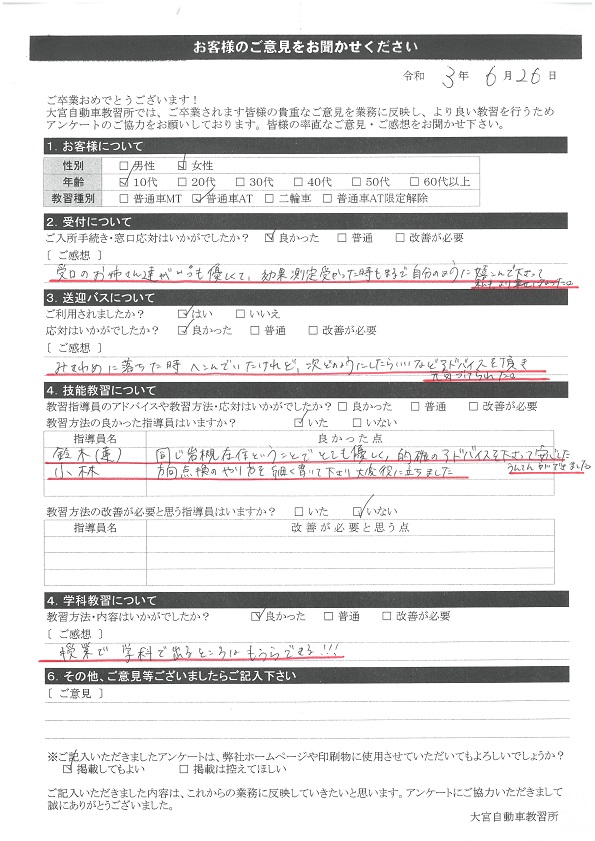 お客様のご意見をお聞かせください
令和 3年 6月 26日
ご卒業おめでとうございます！
大宮自動車教習所では、ご卒業されます皆様の貴重なご意見を業務に反映し、より良い教習を行うため
アンケートのご協力をお願いしております。皆様の率直なご意見・ご感想をお聞かせ下さい。
1. お客様について
性別 □男性 ☑女性
年齢 ☑10代 □20代 □30代 □40代 □50代 □60代以上
教習種別 □普通車MT ☑普通車AT □二輪車 □普通車AT限定解除
2. 受付について
ご入所手続き・窓口応対はいかがでしたか？ ☑良かった □普通 □改善が必要
［ご感想］
受口のお姉さん達がいつも優しくて、効果測定受かった時もまるで自分のように喜んで下さって
3. 送迎バスについて
ご利用されましたか？ ☑はい □いいえ
応対はいかがでしたか？ ☑良かった □普通 □改善が必要
［ご感想］
みきわめに落ちた時へこんでいたけれど、次どのようにしたらいいなどアドバイスを頂き
元気づけられた。
4. 技能教習について
教習指導員のアドバイスや教習方法・応対はいかがでしたか？ □良かった □普通 □改善が必要
教習方法の良かった指導員はいますか？ ☑いた □いない
指導員名 良かった点
鈴木(連) 同じ岩槻在住ということでとても優しく、的確のアドバイスを下さって安心した
うんてんができました
小林 方向点検のやり方を細く書いて下さり大変役に立ちました
教習方法の改善が必要と思う指導員はいますか？ □いた ☑いない
指導員名 改善が必要と思う点
4. 学科教習について
教習方法・内容はいかがでしたか？ ☑良かった □普通 □改善が必要
［ご感想］
授業で学科で出るところはもうらできる!!!
6. その他、ご意見等ございましたらご記入下さい
［ご意見］
※ご記入いただきましたアンケートは、弊社ホームページや印刷物に使用させていただいてもよろしいでしょうか？
☑掲載してもよい □掲載は控えてほしい
ご記入いただきました内容は、これからの業務に反映していきたいと思います。アンケートにご協力いただきまして
誠にありがとうございました。
大宮自動車教習所